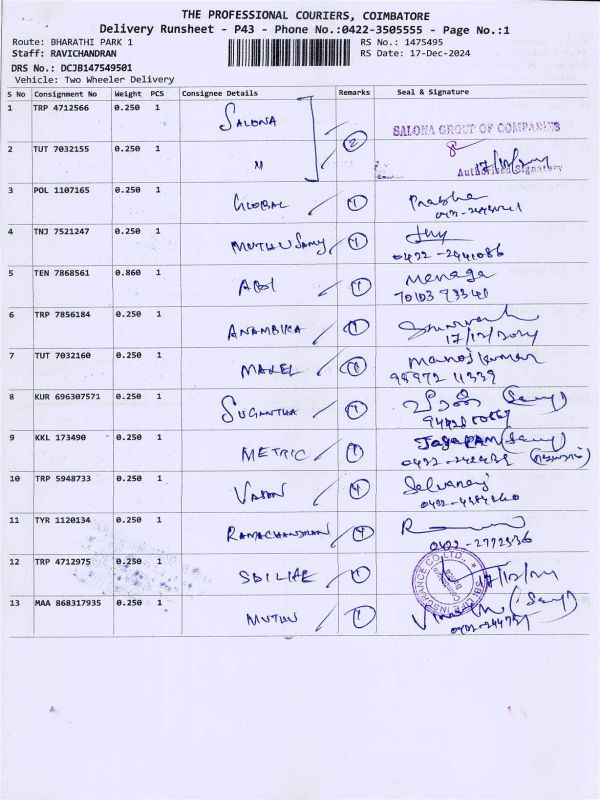 THE PROFESSIONAL COURIERS, COIMBATORE
Delivery Runsheet - P43 - Phone No.:0422-3505555 - Page No.:1
Route: BHARATHI PARK 1 RS No.: 1475495
Staff: RAVICHANDRAN RS Date: 17-Dec-2024
DRS No.: DCJB147549501
Vehicle: Two Wheeler Delivery
S No Consignment No Weight PCS Consignee Details Remarks Seal & Signature
1 TRP 4712566 0.250 1 SALONA 2 SALONA GROUP OF COMPANIES
2 TUT 7032155 0.250 1 Authorised Signatory
3 POL 1107165 0.250 1 GLOBAL 1 Prabha
4 TNJ 7521247 0.250 1 MUTHUSamy 1
0422-2441086
5 TEN 7868561 0.860 1 1 Menaga
6 TRP 7856184 0.250 1 ANAMBIKA 1
17/12/2024
7 TUT 7032160 0.250 1 1 Manoj Kumar
98972 11339
8 KUR 696307571 0.250 1 SUGANTHA 1
9 KKL 173490 0.250 1 METRIC 1
10 TRP 5948733 0.250 1 Selvaraj
11 TYR 1120134 0.250 1 RAMACHANDRAN
0422-2772336
12 TRP 4712975 0.250 1 SBI LIFE 1 SBI LIFE INSURANCE CO. LTD. 17/12/24
13 MAA 868317935 0.250 1 MUTHU 1